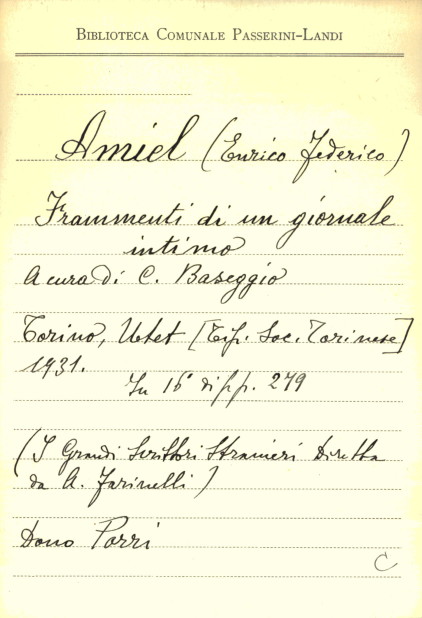 BIBLIOTECA COMUNALE PASSERINI-LANDI
Amiel (Enrico Federico)
Frammenti di un giornale
intimo
A cura di C. Baseggio
Torino, Utet [Tip. Soc. Torinese]
1931.
In 16° di pp. 279
(I Grandi Scrittori Stranieri Diretta
da A. Farinelli)
Dono Porri
C